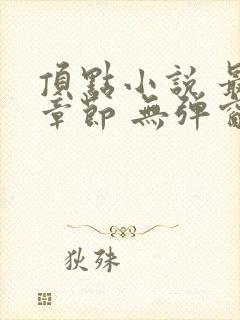 頂點小說 最
章節 無彈窗
狄殊